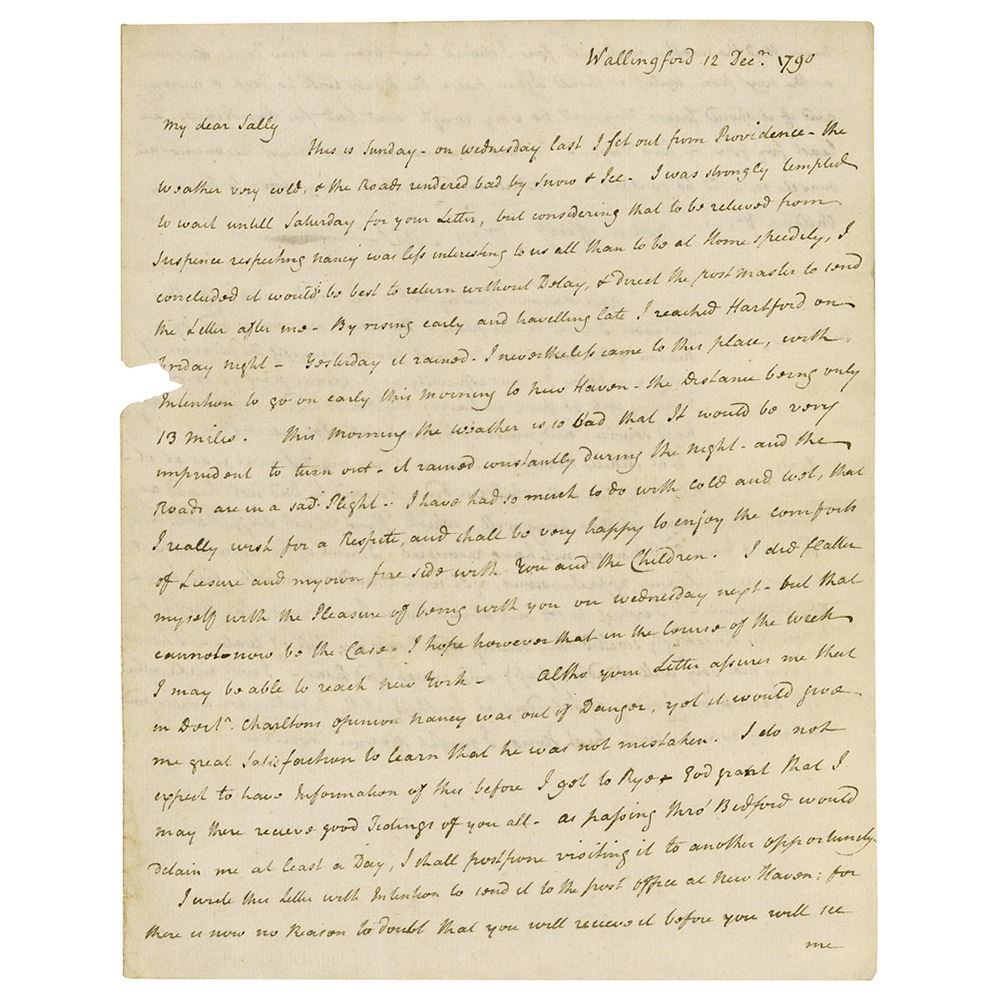 Wallingford 12 Decr. 1790
My dear Sally
This is Sunday - on wednesday last I set out from Providence - the
weather very cold, & the Roads rendered bad by Snow & Ice - I was strongly tempted
to wait untill Saturday for your Letter, but considering that to be relieved from
Suspence respecting Nancy was less interesting to us all than to be at Home speedily, I
concluded it would be best to return without Delay, & direct the post master to send
the Letter after me - By rising early and travelling late I reached Hartford on
Friday night - Yesterday it rained. I nevertheless came to this place, with
Intention to go on early this Morning to New Haven - the Distance being only
13 miles. This Morning the weather is so bad that It would be very
imprudent to turn out - it rained constantly during the night - and the
Roads are in a sad Plight - I have had so much to do with cold and wet, that
I really wish for a Respite, and shall be very happy to enjoy the comforts
of Liesure and my own fire side with You and the Children. I did flatter
myself with the Pleasure of being with you on wednesday next - but that
cannot now be the Case. I hope however that in the Course of the week
I may be able to reach New York - Altho your Letter assures me that
in Doctr. Charltons opinion Nancy was out of Danger, yet it would give
me great Satisfaction to learn that he was not mistaken. I do not
expect to have Information of this before I get to Rye & God grant that I
may there recieve good Tidings of you all - as passing thro' Bedford would
Detain me at least a Day, I shall postpone visiting it to another opportunity.
I write this Letter with Intention to send it to the post office at New Haven; for
there is now no Reason to doubt that you will recieve it before you will see
me